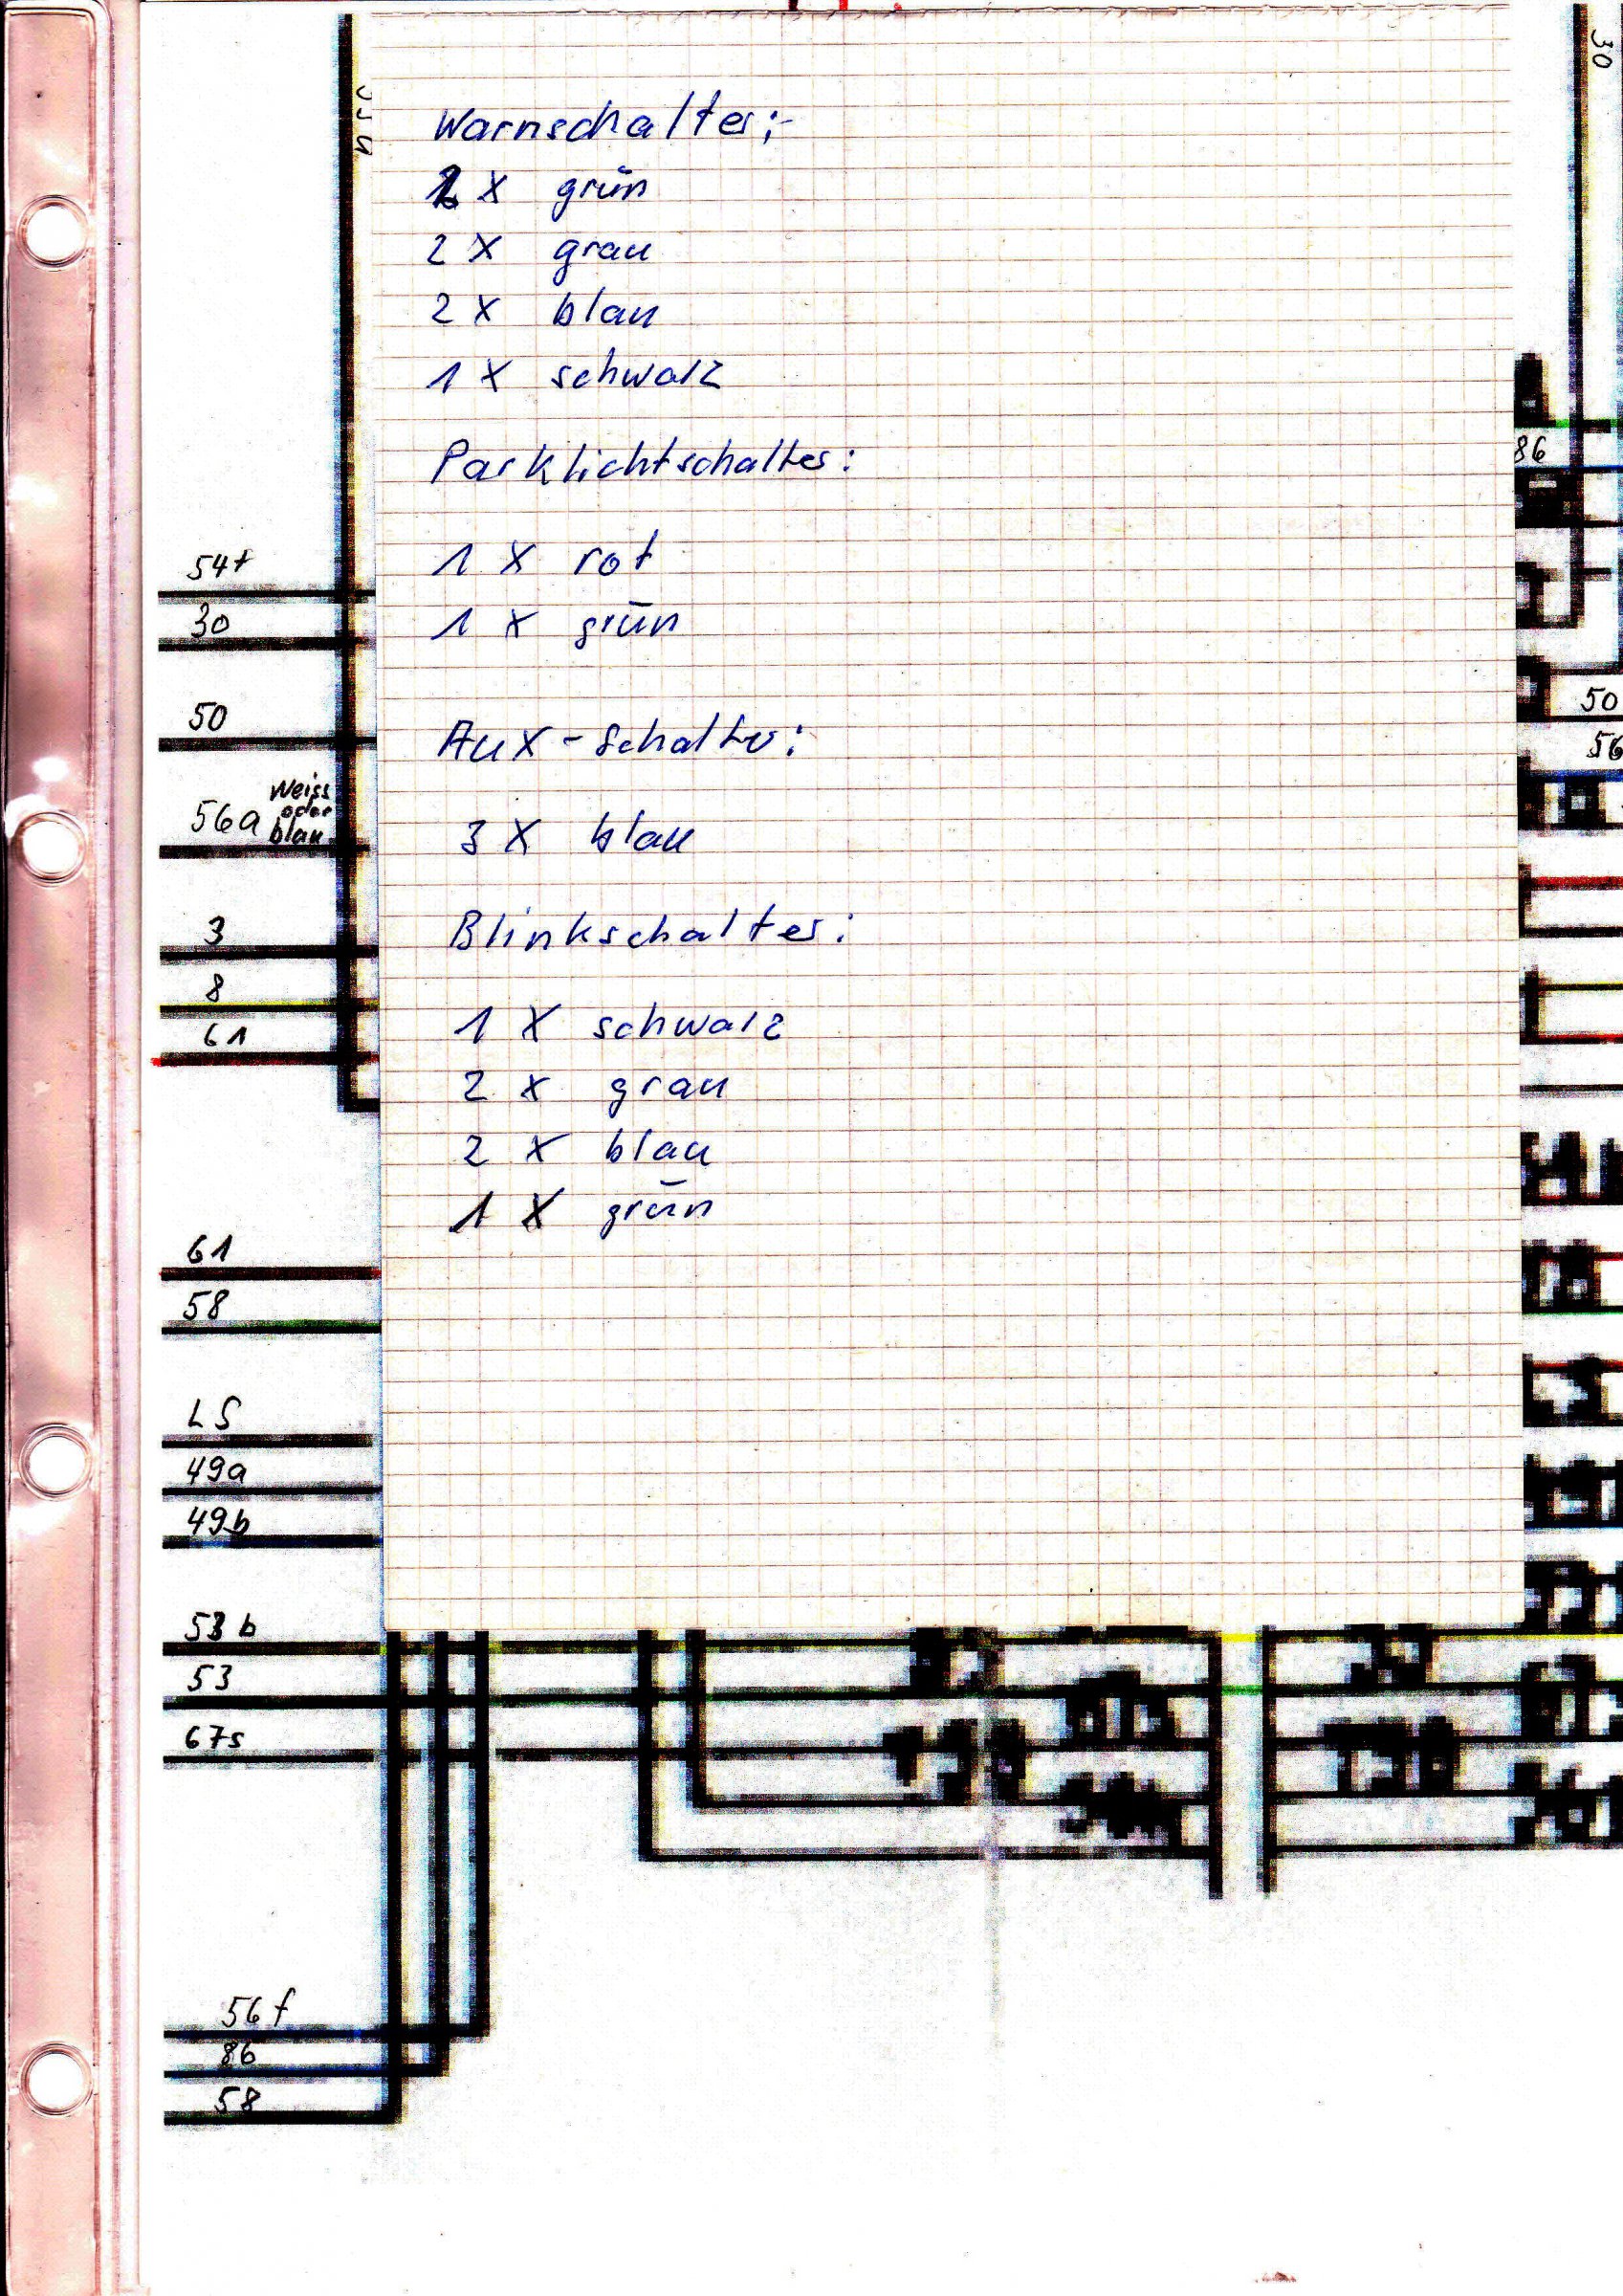 30
Warnschalter:
x grün
2 x grau
2 x blau
1 x schwarz
Parklichtschalter:
1 x rot
1 x grün
Aux-Schalter:
3 x blau
Blinkschalter:
1 x schwarz
2 x grau
2 x blau
1 x grün
54f
30
50
56a Weiss oder blau
3
8
61
61
58
LS
49a
49b
53b
53
67s
56f
86
58
86
50
56